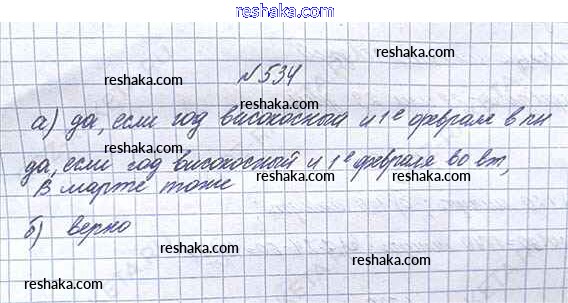 reshaka.com
№534
а) да, если год високосный и 1е февраля в пн
да, если год високосный и 1е февраля во вт,
В марте тоже
б) верно
reshaka.com
reshaka.com
reshaka.com
reshaka.com
reshaka.com
reshaka.com
reshaka.com
reshaka.com
reshaka.com